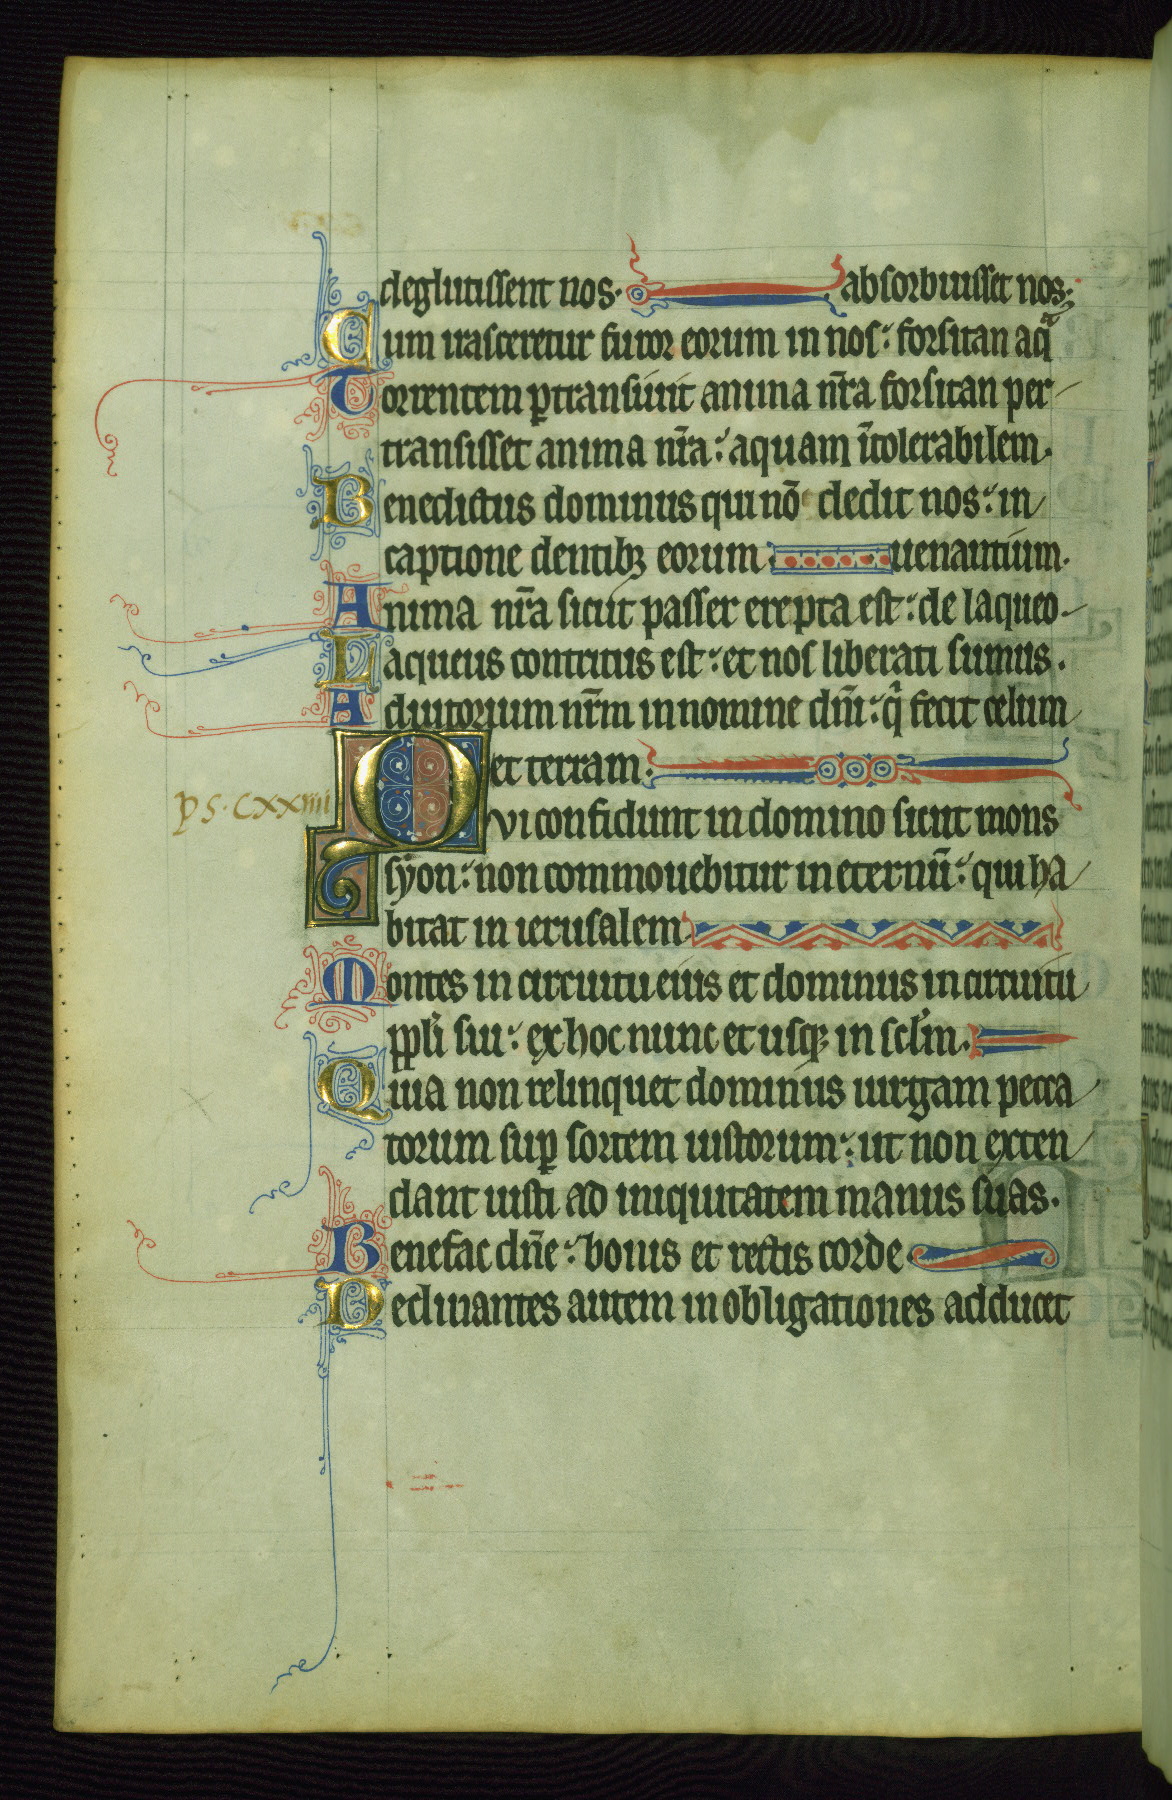 deglutissent nos. absorbuisset nos.
Cum irasceretur furor eorum in nos: forsitan aqͣ
Torrentem ꝑtransiuit anima nr̄a forsitan per
transisset anima nr̄a: aquam ītolerabilem.
Benedictus dominus qui nō dedit nos: in
captione dentibꝫ eorum. uenantium.
Anima nr̄a sicut passer erepta est: de laqueo
Laqueus contritus est: et nos liberati sumus.
Adiutorium nr̄m in nomine dn̄i: qͥ fecit celum
et terram.
Qvi confidunt in domino sicut mons
ps. cxxiiii
syon: non commouebitur in eternū: qui ha
bitat in ierusalem
Montes in circuitu eius et dominus in circuitu
ppl̄i sui: ex hoc nunc et usqꝫ in scl̄m.
Quia non relinquet dominus uirgam pecca
torum suꝑ sortem iustorum: ut non exten
dant iusti ad iniquitatem manus suas.
Benefac dn̄e: bonis et rectis corde
Declinantes autem in obligationes adducet